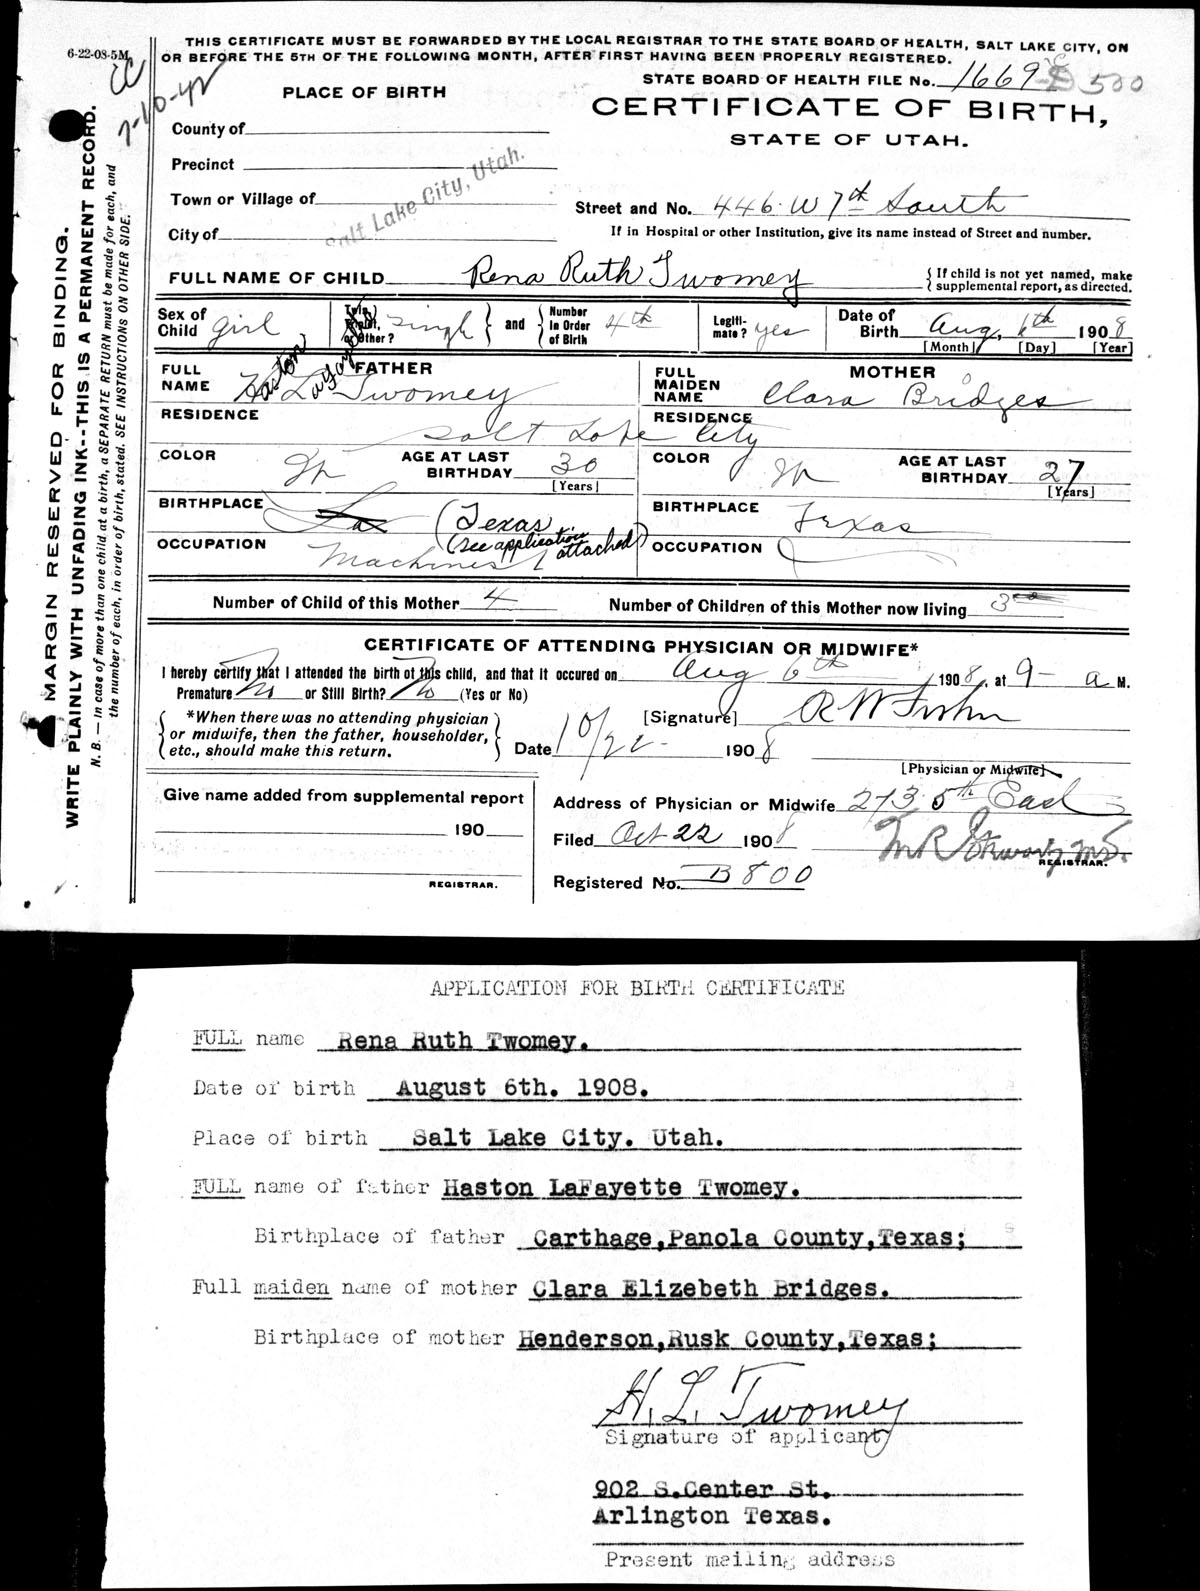 6-22-08-5M
THIS CERTIFICATE MUST BE FORWARDED BY THE LOCAL REGISTRAR TO THE STATE BOARD OF HEALTH, SALT LAKE CITY, ON
OR BEFORE THE 5TH OF THE FOLLOWING MONTH, AFTER FIRST HAVING BEEN PROPERLY REGISTERED.
7-10-42
STATE BOARD OF HEALTH FILE No. 1669 500
PLACE OF BIRTH
CERTIFICATE OF BIRTH,
STATE OF UTAH.
County of
Precinct
Town or Village of
City of
Salt Lake City, Utah.
Street and No. 446 W 7th South
If in Hospital or other Institution, give its name instead of Street and number.
FULL NAME OF CHILD Rena Ruth Twomey
{ If child is not yet named, make
supplemental report, as directed.
Sex of Child girl
Twin, Triplet, or Other? single } and { Number in Order of Birth 4th
Legiti- mate? yes
Date of Birth Aug, 6th 1908
[Month] [Day] [Year]
FATHER
FULL NAME Haston Lafayette Twomey
MOTHER
FULL MAIDEN NAME Clara Bridges
RESIDENCE Salt Lake City
RESIDENCE
COLOR
AGE AT LAST BIRTHDAY 30
[Years]
COLOR
AGE AT LAST BIRTHDAY 27
[Years]
BIRTHPLACE La (Texas
(see application attached)
BIRTHPLACE Texas
OCCUPATION Machinist
OCCUPATION
Number of Child of this Mother 4
Number of Children of this Mother now living 3
CERTIFICATE OF ATTENDING PHYSICIAN OR MIDWIFE*
I hereby certify that I attended the birth of this child, and that it occured on Aug 6th 1908, at 9- a M.
Premature No or Still Birth? No (Yes or No)
{ *When there was no attending physician
or midwife, then the father, householder,
etc., should make this return. }
[Signature] R W
Date 10/22- 1908
[Physician or Midwife]
Give name added from supplemental report
190
REGISTRAR.
Address of Physician or Midwife 273 5th East
Filed Oct 22 1908
M R Stewart M.D.
REGISTRAR.
Registered No. B800
MARGIN RESERVED FOR BINDING.
WRITE PLAINLY WITH UNFADING INK--THIS IS A PERMANENT RECORD.
N. B.—In case of more than one child at a birth, a SEPARATE RETURN must be made for each, and
the number of each, in order of birth, stated. SEE INSTRUCTIONS ON OTHER SIDE.
APPLICATION FOR BIRTH CERTIFICATE
FULL name Rena Ruth Twomey.
Date of birth August 6th. 1908.
Place of birth Salt Lake City. Utah.
FULL name of father Haston LaFayette Twomey.
Birthplace of father Carthage,Panola County,Texas;
Full maiden name of mother Clara Elizebeth Bridges.
Birthplace of mother Henderson,Rusk County,Texas;
H. L. Twomey
Signature of applicant
902 S.Center St.
Arlington Texas.
Present mailing address